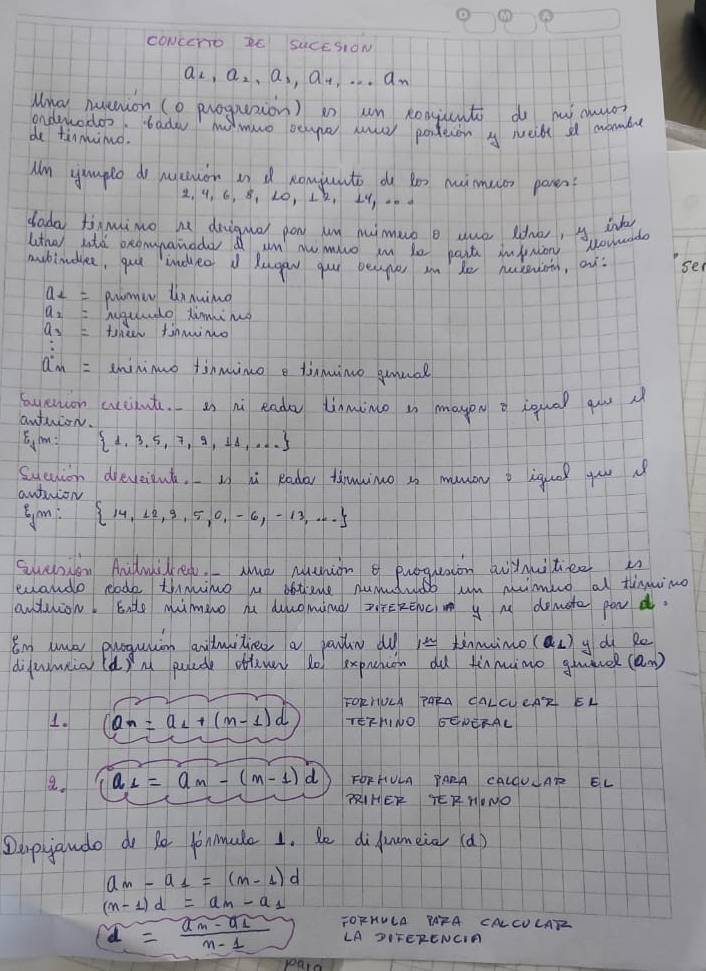 D M A
CONCEPTO DE SUCESIÓN
a₁, a₂, a₃, a₄, ... aₙ
Una sucesión (o progresión) es un conjunto de números
ordenados. Cada número ocupa una posición y recibe el nombre
de término.
Un ejemplo de sucesión es el conjunto de los números pares:
2, 4, 6, 8, 10, 12, 14, ...
Cada término se designa por un número o una letra, y esta
letra está acompañada de un número en la parte inferior llamado
subíndice, que indica el lugar que ocupa en la sucesión, así:
a₁ = primer término
a₂ = segundo término
a₃ = tercer término
⋮
aₙ = enésimo término o término general
Sucesión creciente.- es si cada término es mayor o igual que el
anterior.
Ejm: {1, 3, 5, 7, 9, 11, ...}
Sucesión decreciente.- es si cada término es menor o igual que el
anterior
Ejm: {14, 12, 9, 5, 0, -6, -13, ...}
Sucesión Aritmética.- una sucesión o progresión aritmética es
cuando cada término se obtiene sumando un número al término
anterior. Este número se denomina DIFERENCIA y se denota por d.
En una progresión aritmética a partir del 1er término (a₁) y de la
diferencia (d) se puede obtener la expresión del término general (aₙ)
1. aₙ = a₁ + (n-1)d FORMULA PARA CALCULAR EL
TERMINO GENERAL
2. a₁ = aₙ - (n-1)d FORMULA PARA CALCULAR EL
PRIMER TERMINO
Despejando de la fórmula 1. la diferencia (d)
aₙ - a₁ = (n-1)d
(n-1)d = aₙ - a₁
d = (aₙ - a₁)/(n-1) FORMULA PARA CALCULAR
LA DIFERENCIA
ser
para